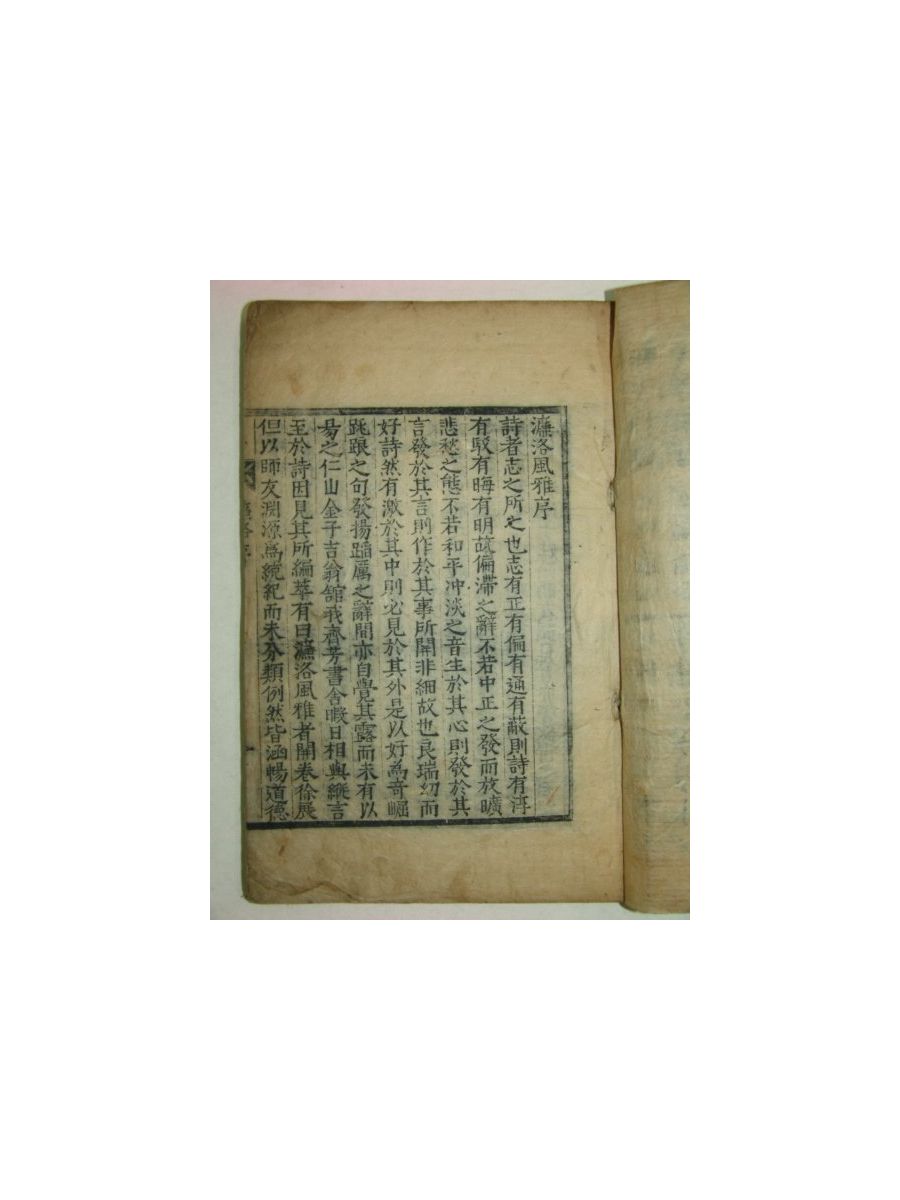 濂洛風雅序
詩者志之所之也志有正有偏有通有蔽則詩有淳
有駁有晦有明故偏滯之辭不若中正之發而放曠
悲愁之態不若和平冲淡之音生於其心則發於其
言發於其言則作於其事所開非細故也良瑞幼而
好詩然有激於其中則必見於其外是以好爲奇崛
跳踉之句發揚蹈厲之辭間亦自覺其露而未有以
易之仁山金子吉翁舘我齊芳書舍暇日相與縱言
至於詩因見其所編萃有曰濂洛風雅者開卷徐展
但以師友淵源爲統紀而未分類例然皆涵暢道德